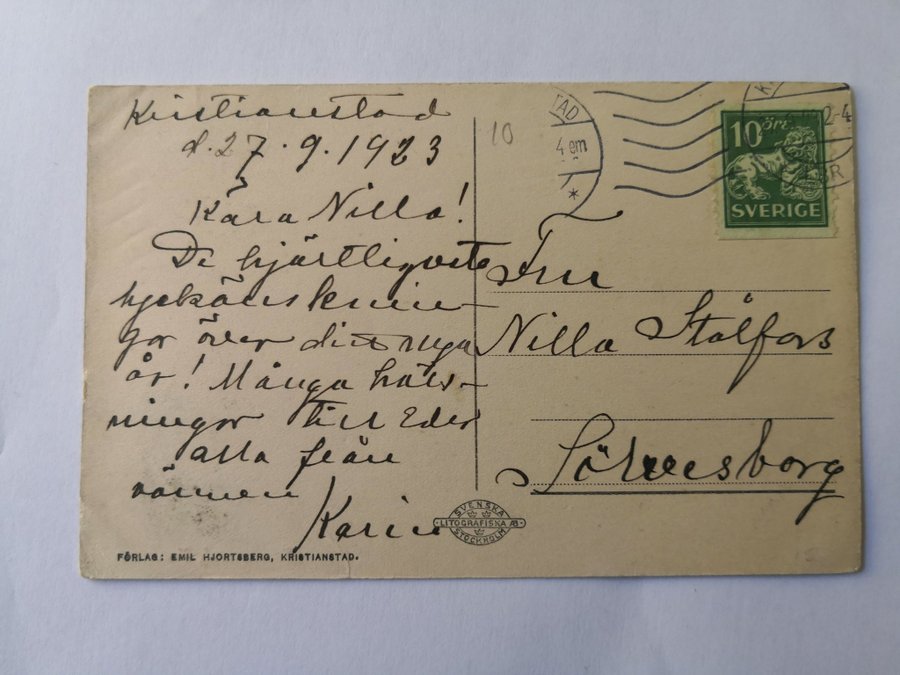 Kristianstad
d. 27.9.1923
Kära Nilla!
De hjärtligaste
lyckönsknin-
gar över ditt nya
år! Många häls-
ningar till Eder
alla från
vännen
Karin
FÖRLAG: EMIL HJORTSBERG, KRISTIANSTAD.
SVENSKA
LITOGRAFISKA AB
STOCKHOLM
10
TAD
4 em
10 öre
SVERIGE
2-4
Fru
Nilla Stålfors
Sölvesborg